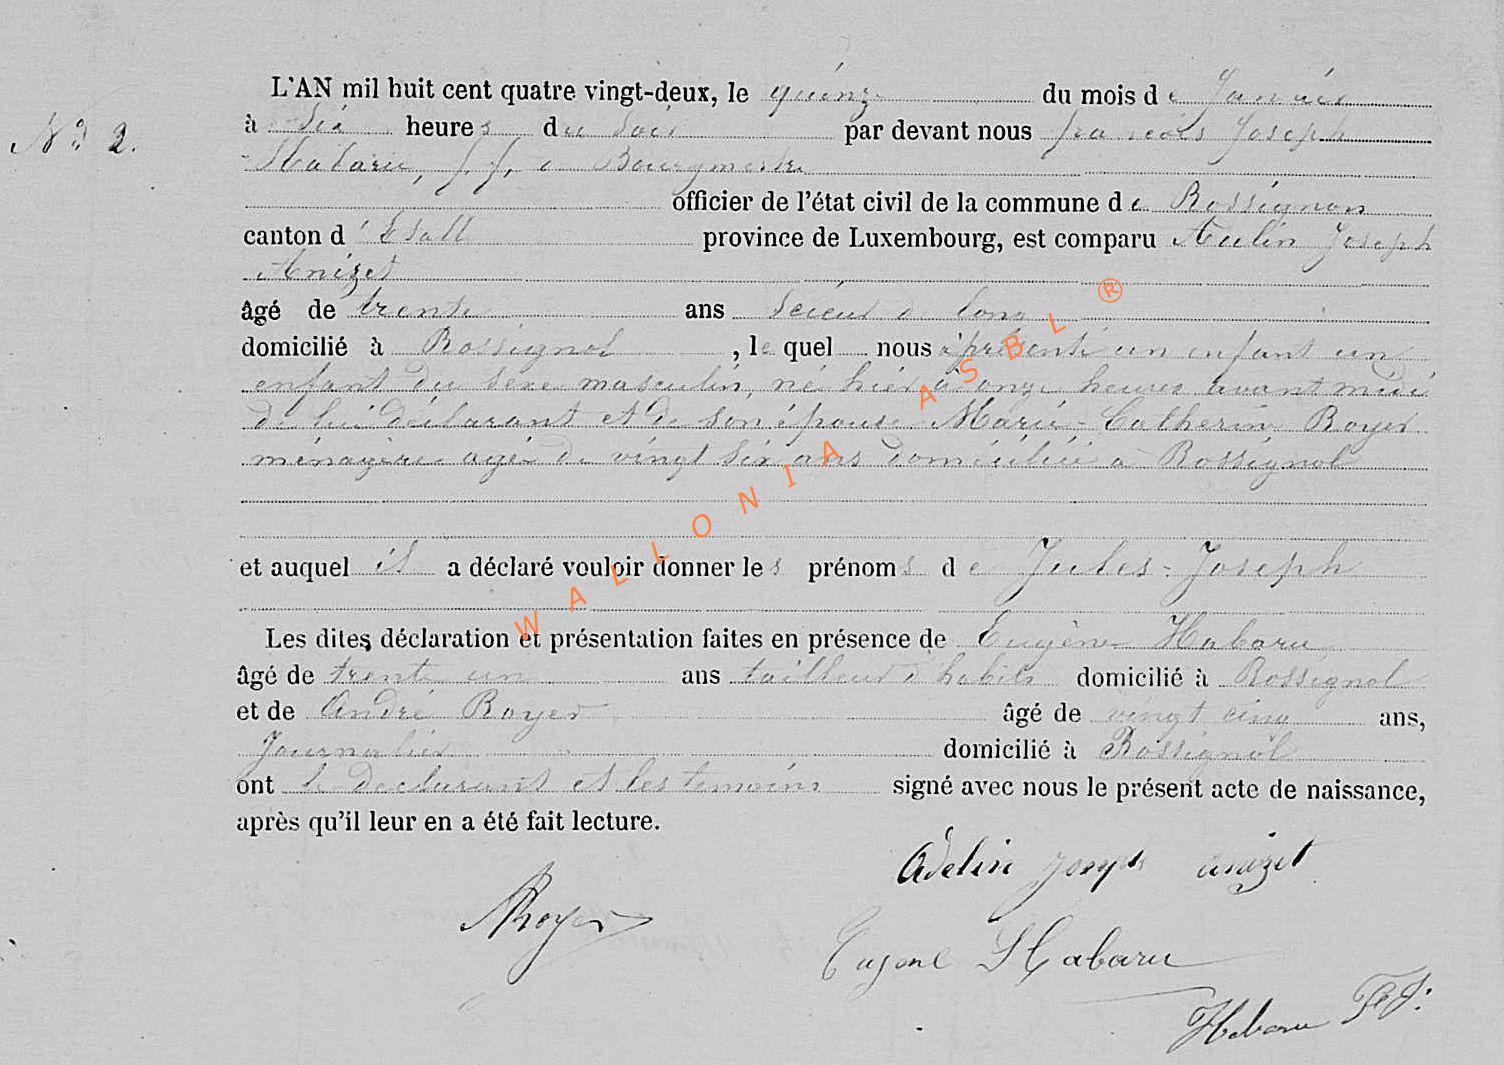 L'AN mil huit cent quatre vingt-deux, le quinze du mois de Janvier
Nº 2. à Six heures du Soir par devant nous françois Joseph
Habaru, f. f. de Bourgmestre
officier de l'état civil de la commune de Rossignon
canton d'Etalle province de Luxembourg, est comparu Adelin Joseph
Anizet
âgé de trente ans Scieur de long
domicilié à Rossignol , le quel nous a présenté un enfant un
enfant du sexe masculin, né hier à onze heures avant midi
de lui déclarant et de son épouse Marie-Catherine Royer
ménagère agée de vingt six ans domiciliée à Rossignol
et auquel il a déclaré vouloir donner les prénoms de Jules-Joseph
Les dites déclaration et présentation faites en présence de Eugène Habaru
âgé de trente un ans tailleur d'habits domicilié à Rossignol
et de André Royer âgé de vingt cinq ans,
Journalier domicilié à Rossignol
ont le declarant et les temoins signé avec nous le présent acte de naissance,
après qu'il leur en a été fait lecture.
Adelin Joseph anizet
ARoyer
Eugene Habaru
Habaru Fs J:
WALLONIA ASBL ®